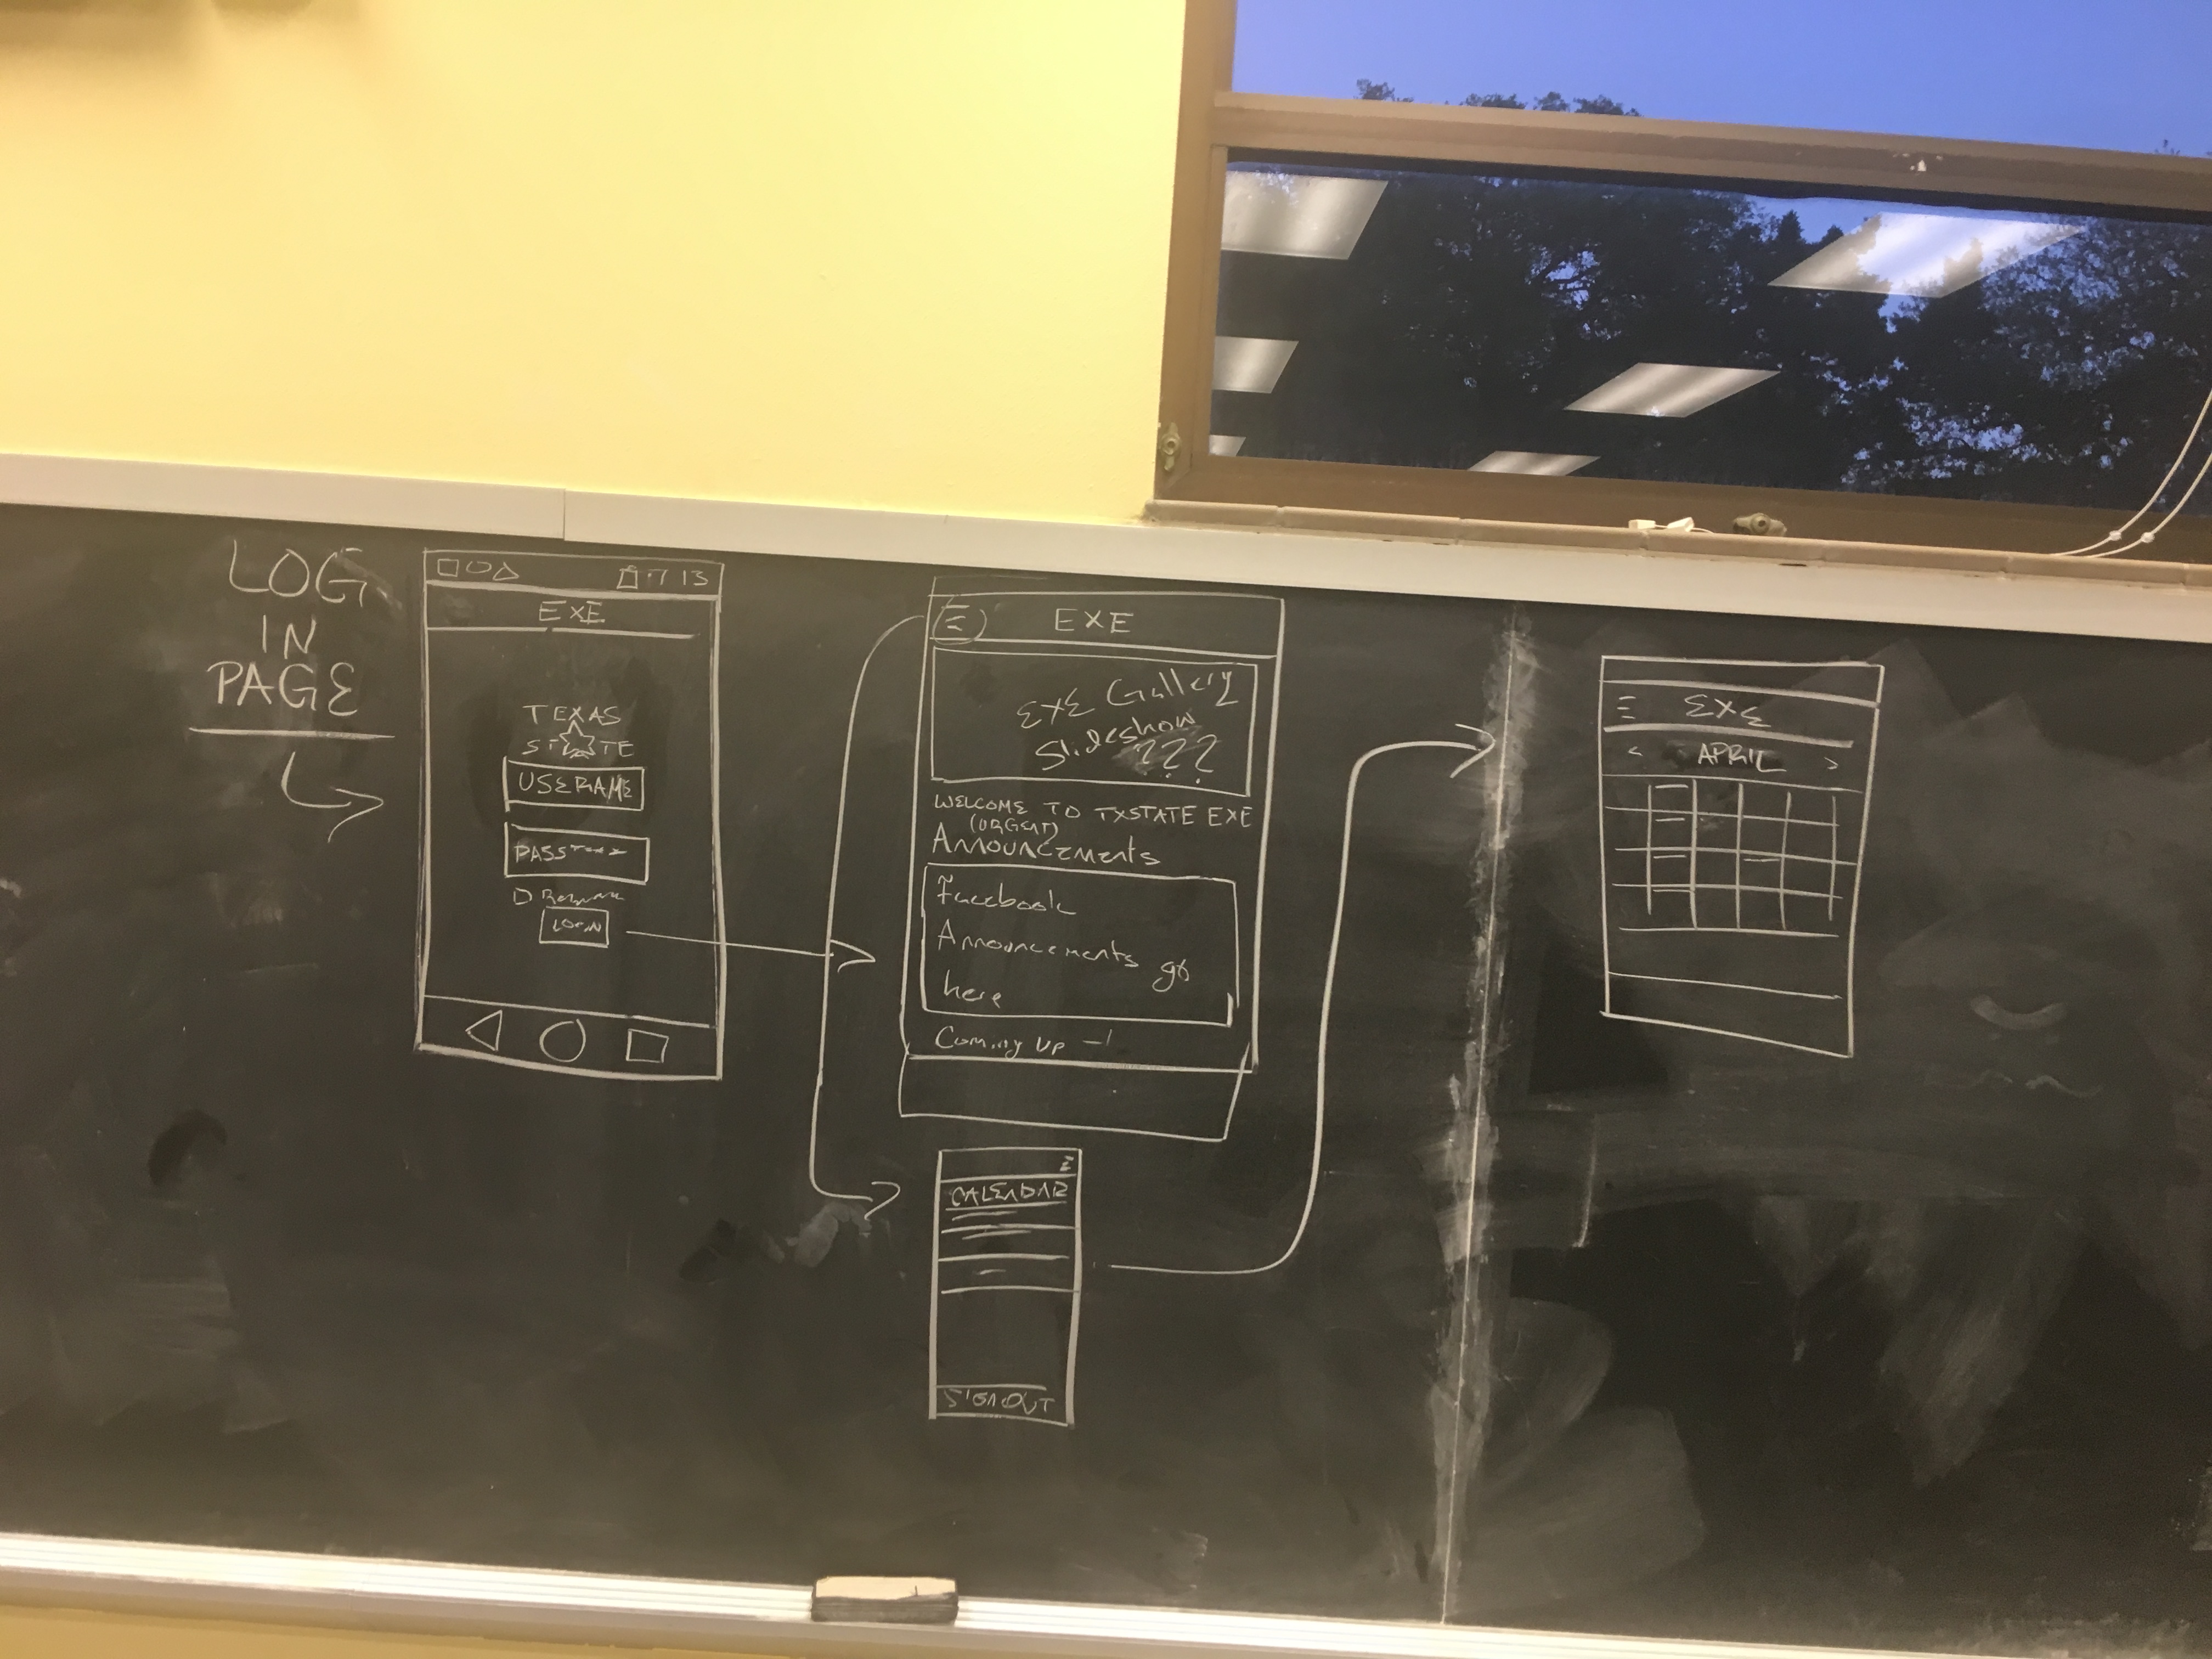 LOG
IN
PAGE
EXE
TEXAS
STTE
USERAME
PASS
LOGIN
EXE
EXE Gallery
Slideshow
???
WELCOME TO TXSTATE EXE
(URGENT)
Announcements
Facebook
Announcements go
here
Coming up
CALENDAR
SIGNOUT
EXE
< APRIL >